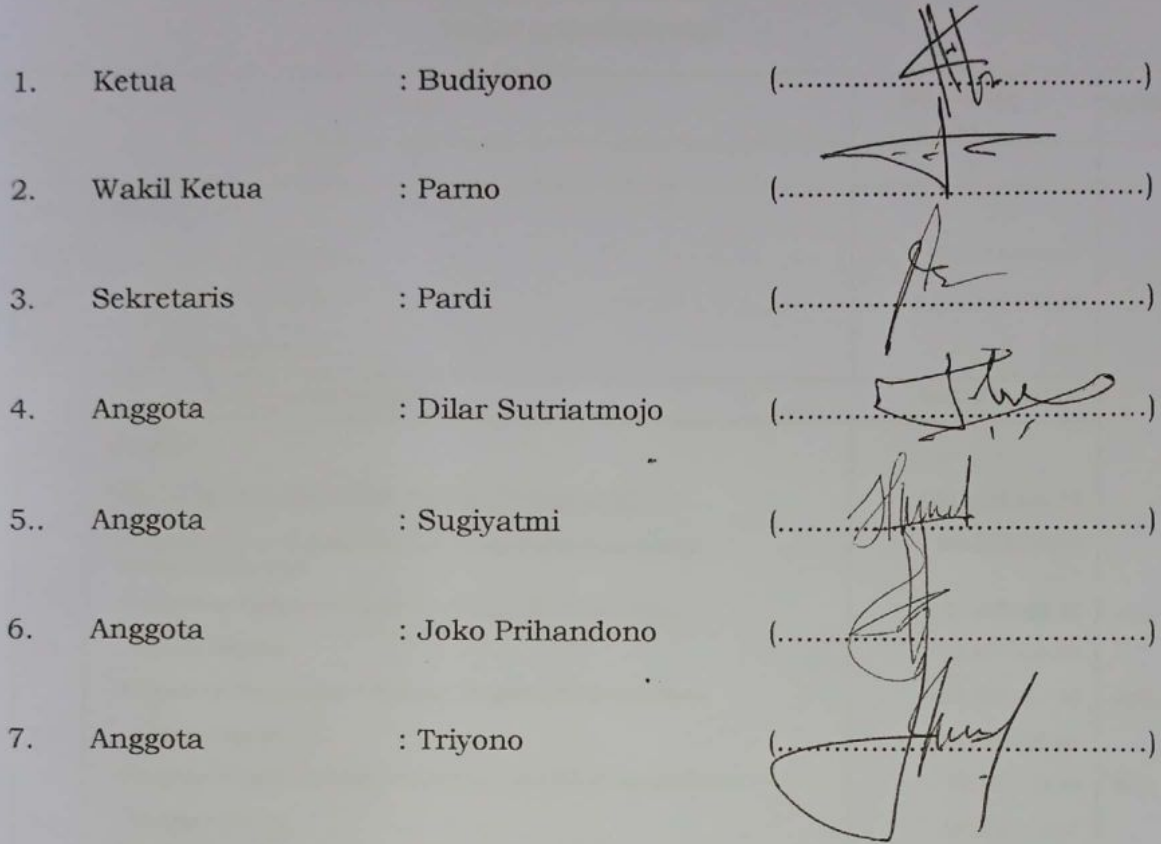 1. Ketua : Budiyono (........................................)
2. Wakil Ketua : Parno (........................................)
3. Sekretaris : Pardi (........................................)
4. Anggota : Dilar Sutriatmojo (........................................)
5.. Anggota : Sugiyatmi (........................................)
6. Anggota : Joko Prihandono (........................................)
7. Anggota : Triyono (........................................)